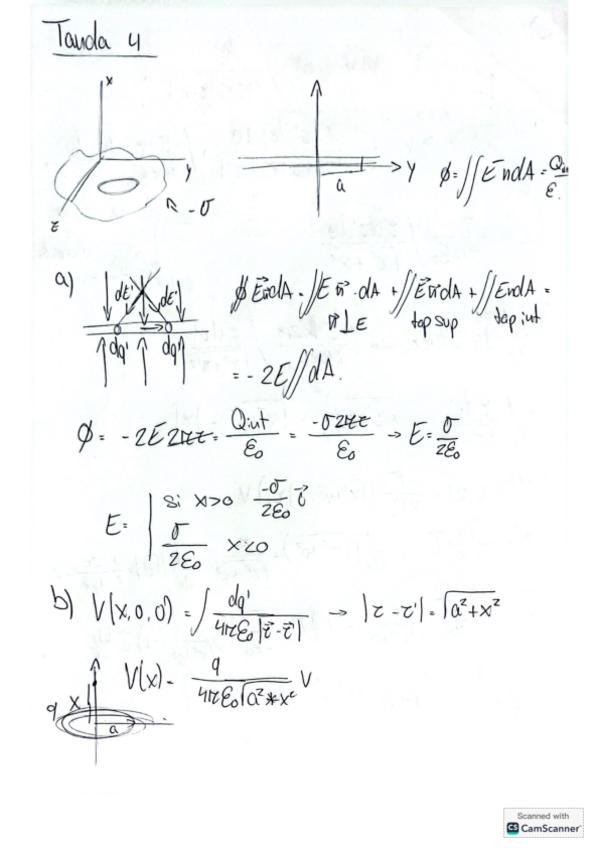 Tanda 4
x
y
z
-σ
y
a
ϕ = ∬ E n dA = Q
ε
a)
dE' dE'
dq' dq'
∯ E⃗ n dA = ∬ E n⃗ · dA + ∬ E⃗ n⃗ dA + ∬ E n dA =
n⃗ ⊥ E tap sup tap int
= - 2E ∬ dA.
ϕ = -2E 2πr = Qint/ε₀ = -σ2πr/ε₀ → E = σ/2ε₀
E = | si x>0 -σ/2ε₀ i⃗
σ/2ε₀ x<0
b) V(x,0,0) = ∫ dq'/4πε₀|r⃗ - r⃗'| → |r - r'| = √a²+x²
V(x) = q/4πε₀√a²*x² V
q x
a
Scanned with
CS CamScanner